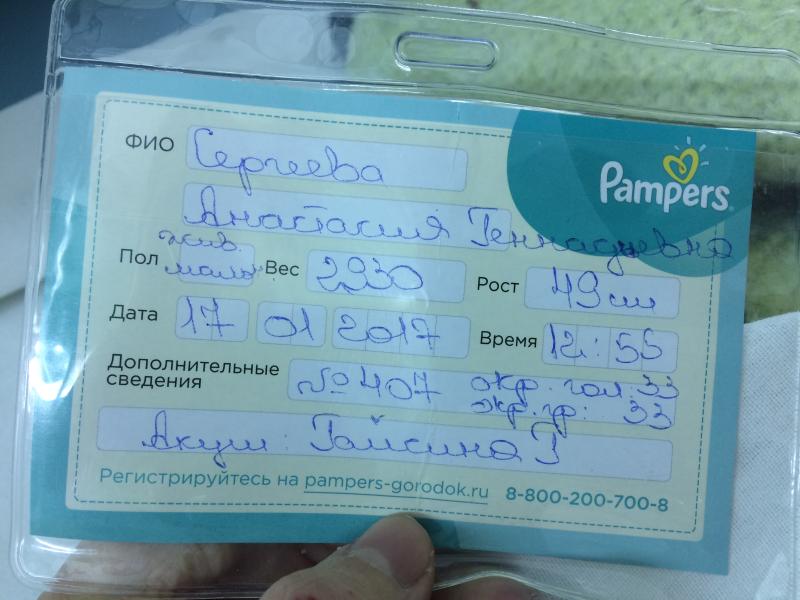 Pampers
ФИО Сергеева
Анастасия Геннадьевна
Пол жив. маль Вес 2930 Рост 49 см
Дата 17 01 2017 Время 12:55
Дополнительные сведения №407 окр. гол. 33
окр. гр: 33
Акуш: Гайсина Г
Регистрируйтесь на pampers-gorodok.ru 8-800-200-700-8